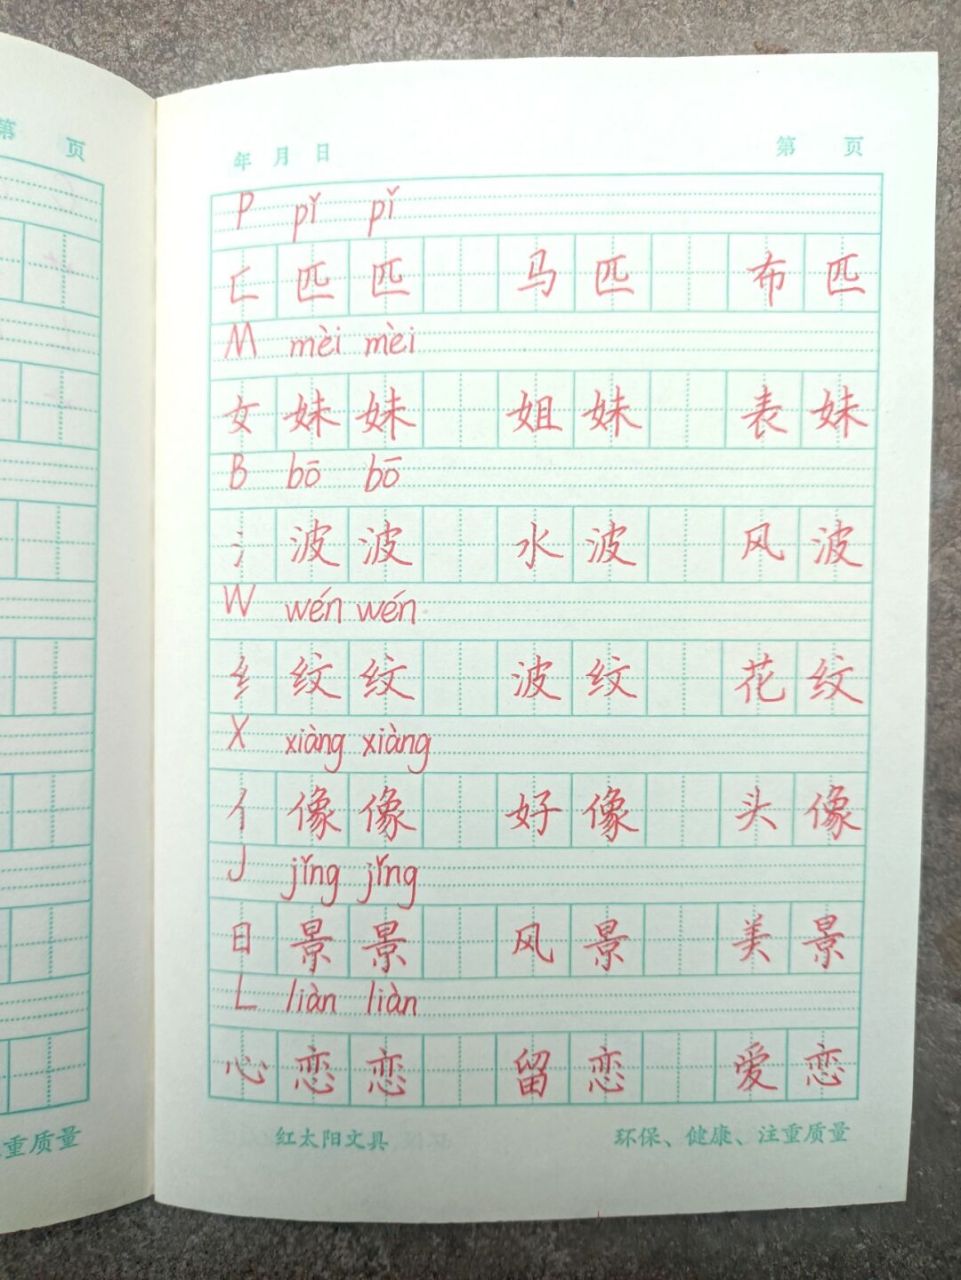 第 页
年 月 日 第 页
P pǐ pǐ
匚 匹 匹 马 匹 布 匹
M mèi mèi
女 妹 妹 姐 妹 表 妹
B bō bō
氵 波 波 水 波 风 波
W wén wén
纟 纹 纹 波 纹 花 纹
X xiàng xiàng
亻 像 像 好 像 头 像
J jǐng jǐng
日 景 景 风 景 美 景
L liàn liàn
心 恋 恋 留 恋 爱 恋
重质量 红太阳文具 环保、健康、注重质量